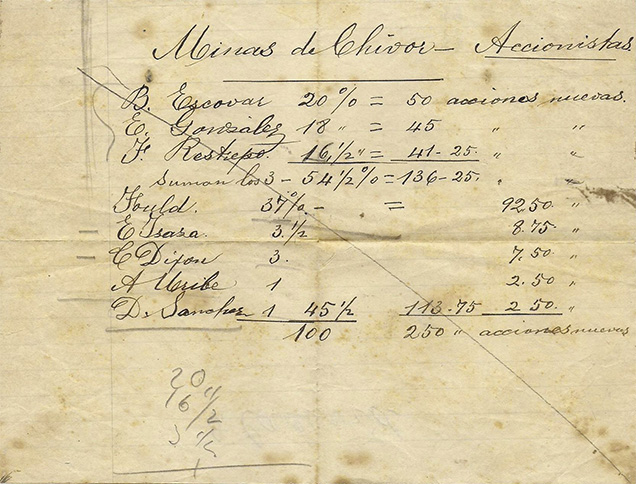 Minas de Chivor - Accionistas
B. Escovar 20 % = 50 acciones nuevas.
E. Gonzalez 18 " = 45 " "
F. Restrepo. 16,1/2 " = 41-25. " "
Suman los 3 - 54 1/2 % = 136-25. " "
Fould. 37 % - = 92.50 "
E Isaza. 3.1/2 8.75 "
C Dixon 3. 7.50 "
A Uribe 1 2.50 "
D. Sanchez 1 45 1/2 113-75 2 50. "
100 250 " acciones nuevas
20
16 1/2
3 1/2